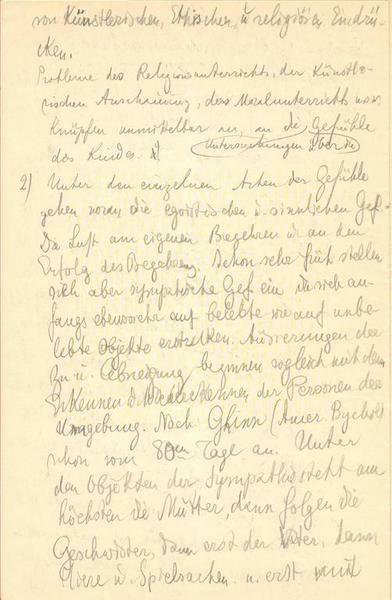 von Künstlerischen, Ethischen, u religiösen Eindrü-
cken.
Probleme des Religionsunterrichts, der Künstle-
rischen Anschauung, des Moralunterrichts usw
Knüpfen unmittelbar an, an die Gefühle
des Kindes. Untersuchungen über die
2) Unter den einzelnen Arten der Gefühle
gehen voran die egoistischen u. sinnlichen Gef.
Die Lust am eigenen Begehren u. an dem
Erfolg des Begehrens. Schon sehr früh stellen
sich aber sympatische Gef ein, die sich an-
fangs ebensosehr auf belebte wie auf unbe-
lebte Objekte erstrecken. Äusserungen der
Zu u. Abneigung beginnen sogleich mit dem
Erkennen u. Wiedererkennen der Personen der
Umgebung. Nach (Amer. Psychol
schon vom 80en Tage an. Unter
den Objekten der Sympathie steht am
höchsten die Mutter, dann folgen die
Geschwister, dann erst der Vater, dann
Tiere u. Spielsachen. u. erst mit